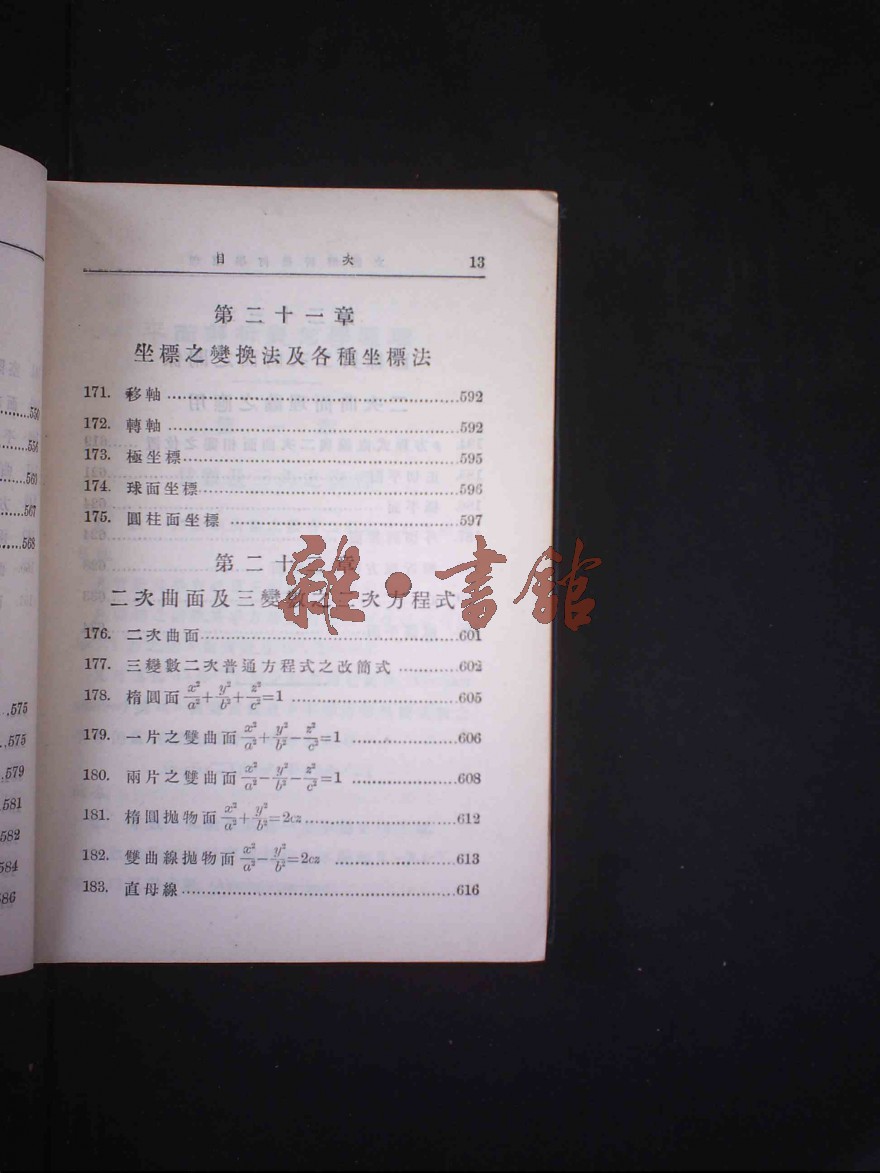 目 次 13
第二十一章
坐標之變換法及各種坐標法
171. 移軸 592
172. 轉軸 592
173. 極坐標 595
174. 球面坐標 596
175. 圓柱面坐標 597
第二十二章
二次曲面及三變數之二次方程式
176. 二次曲面 601
177. 三變數二次普通方程式之改簡式 602
178. 橢圓面 x²/a²+y²/b²+z²/c²=1 605
179. 一片之雙曲面 x²/a²+y²/b²−z²/c²=1 606
180. 兩片之雙曲面 x²/a²−y²/b²−z²/c²=1 608
181. 橢圓拋物面 x²/a²+y²/b²=2cz 612
182. 雙曲線拋物面 x²/a²−y²/b²=2cz 613
183. 直母線 616
雜·書館
550
554
565
567
568
575
575
579
581
582
584
586